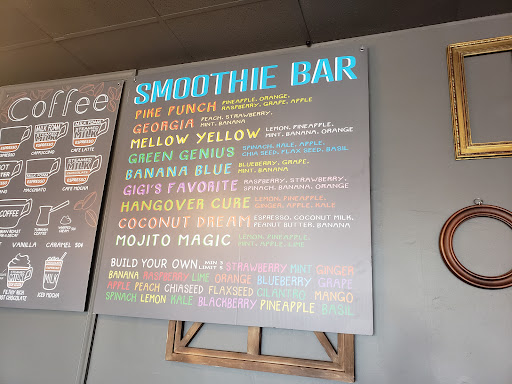 Coffee
MILK FOAM
STEAMED MILK
ESPRESSO
MILK FOAM
STEAMED MILK
ESPRESSO
ESPRESSO
CAPPUCCINO
CAFE LATTE
ESPRESSO
MACCHIATO
CAFE MOCHA
COFFEE
TURKISH COFFEE
VANILLA CARAMEL 50¢
HOT CHOCOLATE
MILK
ICED MOCHA
SMOOTHIE BAR
PIKE PUNCH PINEAPPLE, ORANGE,
RASPBERRY, GRAPE, APPLE
GEORGIA PEACH, STRAWBERRY,
MINT, BANANA
MELLOW YELLOW LEMON, PINEAPPLE,
MINT, BANANA, ORANGE
GREEN GENIUS SPINACH, KALE, APPLE,
CHIA SEED, FLAX SEED, BASIL
BANANA BLUE BLUEBERRY, GRAPE,
MINT, BANANA
GIGI'S FAVORITE RASPBERRY, STRAWBERRY,
SPINACH, BANANA, ORANGE
HANGOVER CURE LEMON, PINEAPPLE,
GINGER, APPLE, KALE
COCONUT DREAM ESPRESSO, COCONUT MILK,
PEANUT BUTTER, BANANA
MOJITO MAGIC LEMON, PINEAPPLE
MINT, APPLE, LIME
BUILD YOUR OWN: MIN 3 LIMIT 5 STRAWBERRY MINT GINGER
BANANA RASPBERRY LIME ORANGE BLUEBERRY GRAPE
APPLE PEACH CHIASEED FLAXSEED CILANTRO MANGO
SPINACH LEMON KALE BLACKBERRY PINEAPPLE BASIL